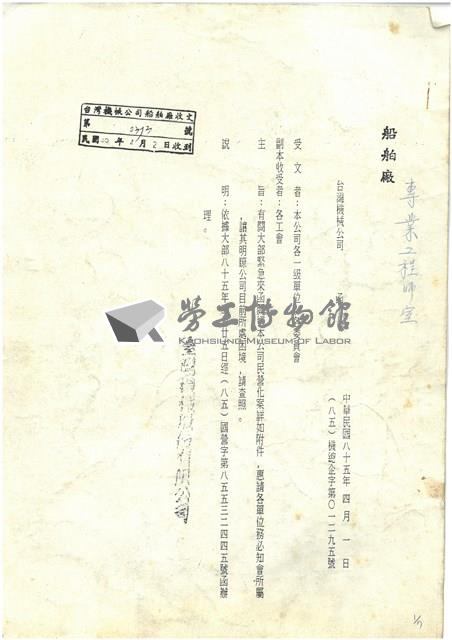 船舶廠
專業工程師室
台灣機械公司船舶廠收文
第 號
民國 年 月 2日收到
台灣機械公司 函
中華民國八十五年四月一日
(八五)機總企字第〇一二九五號
受文者:本公司各一級單位
委員會
副本收受者:各工會
主旨:有關大部緊急來函
本公司民營化案詳如附件,惠請各單位務必知會所屬
,讓其明瞭公司目前所處困境,請查照。
說明:依據大部八十五年
廿五日經(八五)國營字第八五五三二四四五號函辦
理。
勞工博物館
KAOHSIUNG MUSEUM OF LABOR
1/7